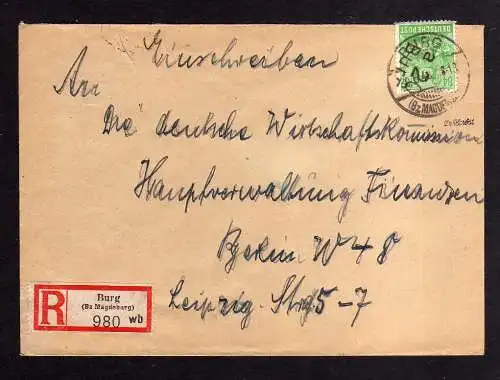 Einschreiben
DEUTSCHE POST
BURG
(Bz. MAGDEB
An
Die deutsche Wirtschaftskomission
Hauptverwaltung Finanzen
Berlin W 48
Leipzig. Strg 5-7
R
Burg
(Bz. Magdeburg)
980 wb